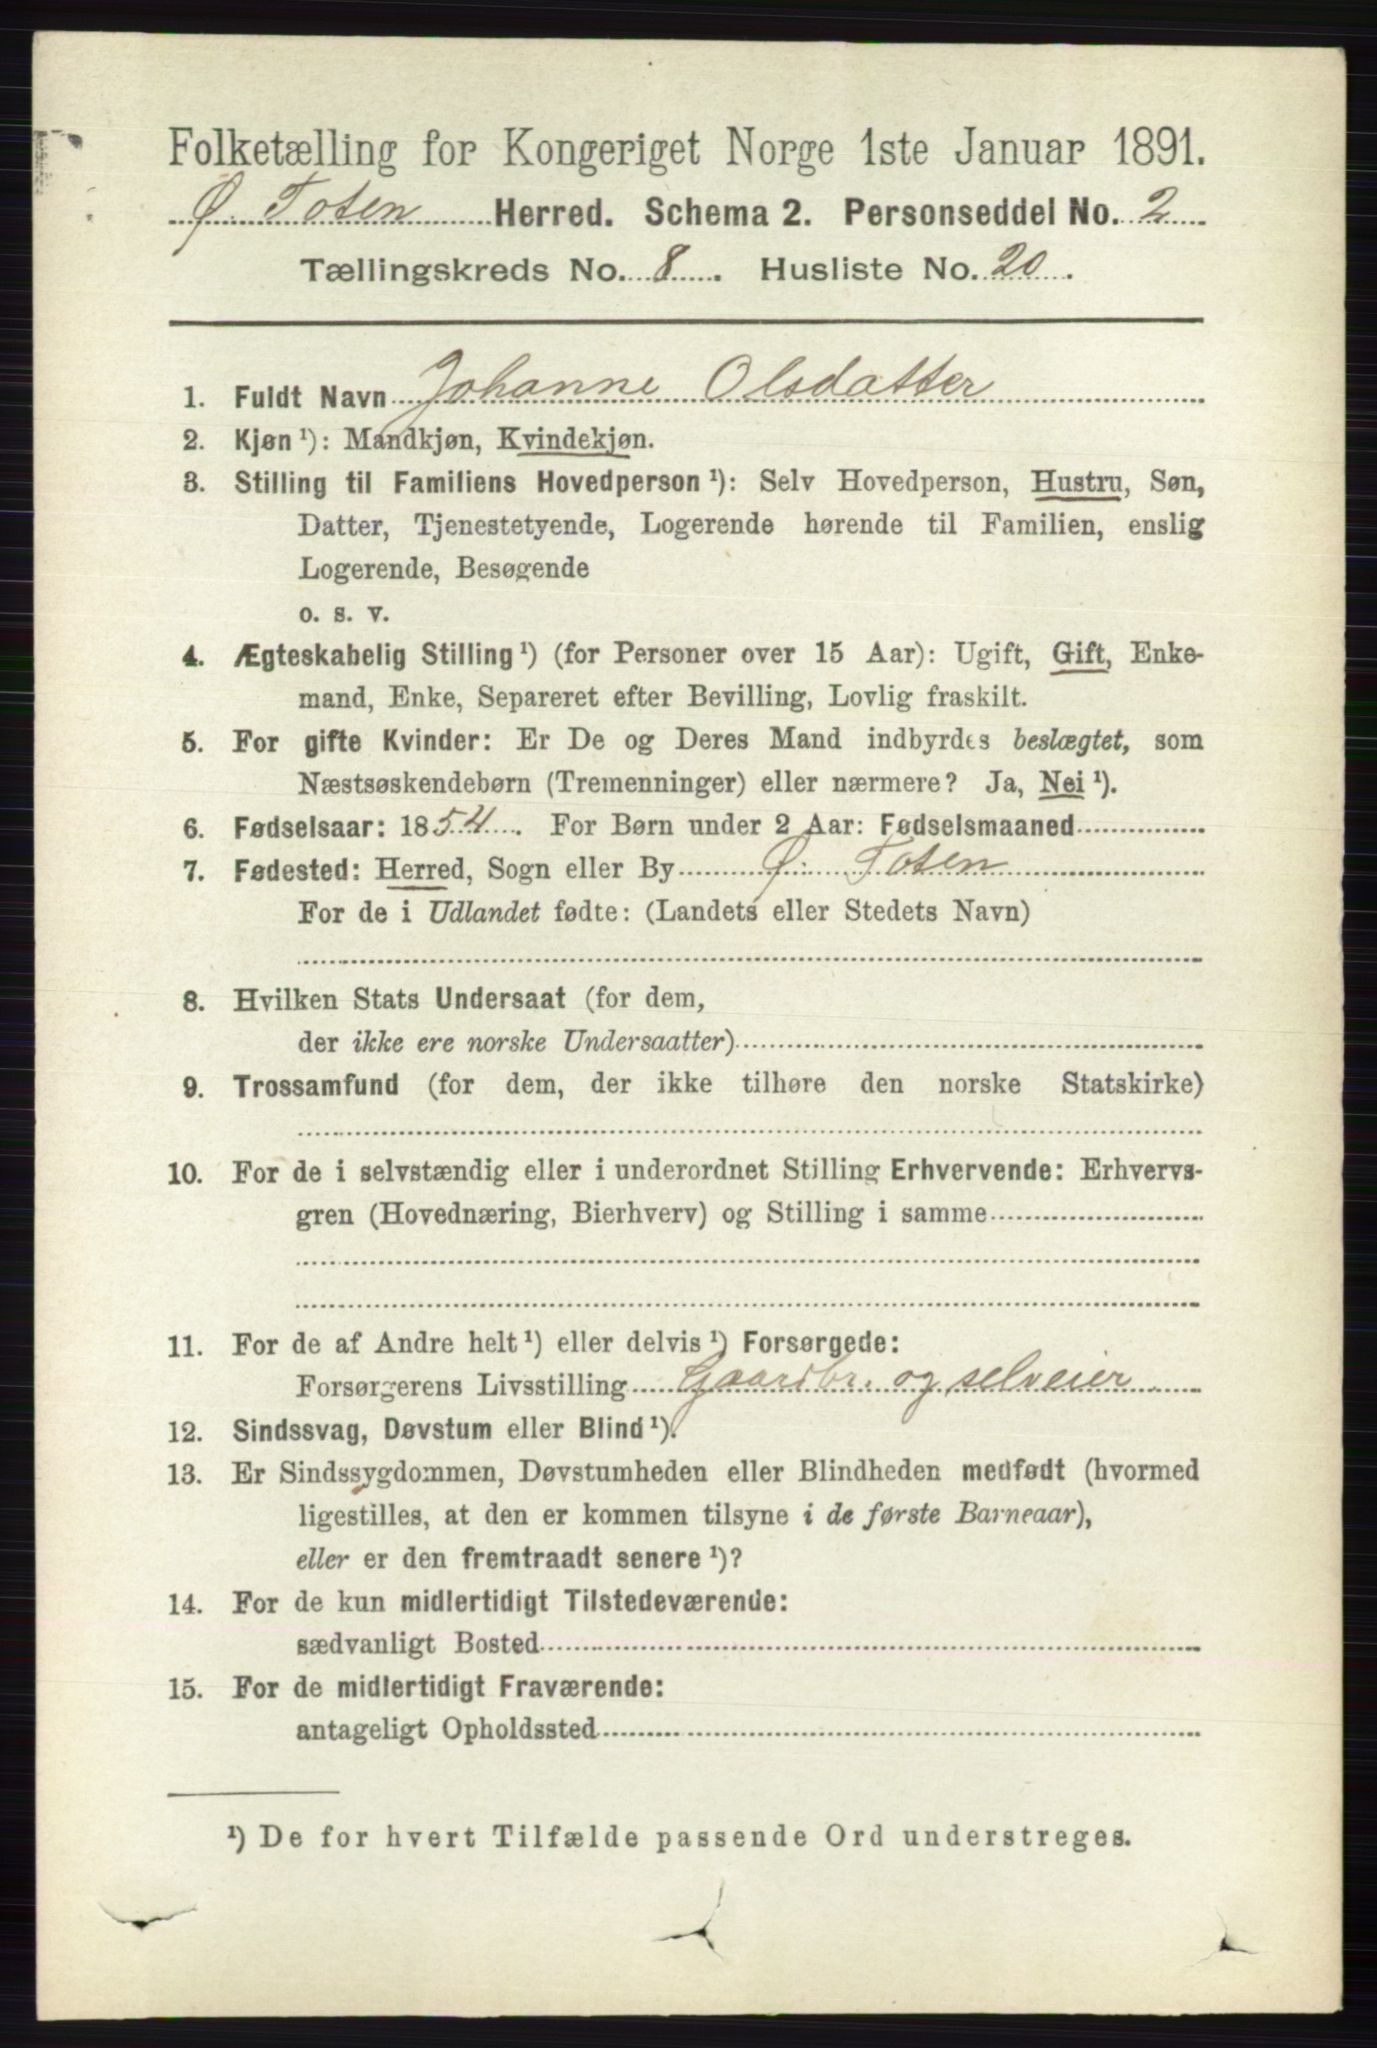 Folketælling for Kongeriget Norge 1ste Januar 1891.
Ø. Toten Herred. Schema 2. Personseddel No. 2
Tællingskreds No. 8. Husliste No. 20.
1. Fuldt Navn Johanne Olsdatter
2. Kjøn ¹): Mandkjøn, Kvindekjøn.
3. Stilling til Familiens Hovedperson ¹): Selv Hovedperson, Hustru, Søn,
Datter, Tjenestetyende, Logerende hørende til Familien, enslig
Logerende, Besøgende
o. s. v.
4. Ægteskabelig Stilling ¹) (for Personer over 15 Aar): Ugift, Gift, Enke-
mand, Enke, Separeret efter Bevilling, Lovlig fraskilt.
5. For gifte Kvinder: Er De og Deres Mand indbyrdes beslægtet, som
Næstsøskendebørn (Tremenninger) eller nærmere? Ja, Nei ¹).
6. Fødselsaar: 1854. For Børn under 2 Aar: Fødselsmaaned
7. Fødested: Herred, Sogn eller By Ø. Toten
For de i Udlandet fødte: (Landets eller Stedets Navn)
8. Hvilken Stats Undersaat (for dem,
der ikke ere norske Undersaatter)
9. Trossamfund (for dem, der ikke tilhøre den norske Statskirke)
10. For de i selvstændig eller i underordnet Stilling Erhvervende: Erhvervs-
gren (Hovednæring, Bierhverv) og Stilling i samme
11. For de af Andre helt ¹) eller delvis ¹) Forsørgede:
Forsørgerens Livsstilling Gaardbr. og selveier
12. Sindssvag, Døvstum eller Blind ¹).
13. Er Sindssygdommen, Døvstumheden eller Blindheden medfødt (hvormed
ligestilles, at den er kommen tilsyne i de første Barneaar),
eller er den fremtraadt senere ¹)?
14. For de kun midlertidigt Tilstedeværende:
sædvanligt Bosted
15. For de midlertidigt Fraværende:
antageligt Opholdssted
¹) De for hvert Tilfælde passende Ord understreges.